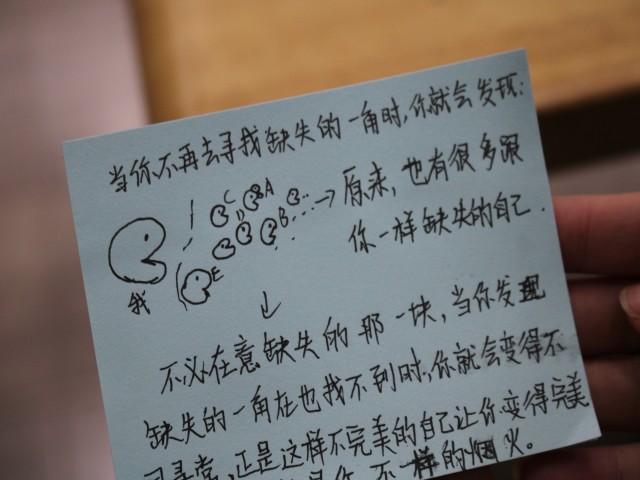 当你不再去寻找缺失的一角时,你就会发现:
C A
D B
→ 原来,也有很多跟
你一样缺失的自己.
我 E
↓
不必在意缺失的那一块,当你发现
缺失的一角在也找不到时,你就会变得不
寻常,正是这样不完美的自己让你变得完美
不一样的烟火。